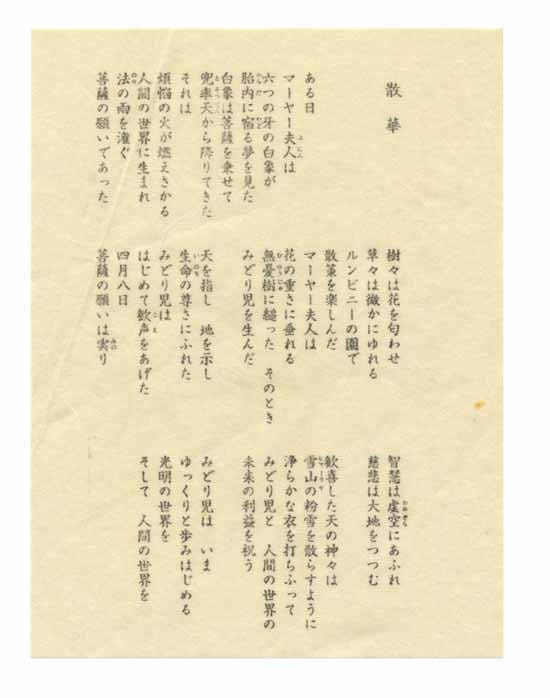 散華
ある日
マーヤー夫人は
六つの牙の白象が
胎内に宿る夢を見た
白象は菩薩を乗せて
兜率天から降りてきた
それは
煩悩の火が燃えさかる
人間の世界に生まれ
法の雨を灌ぐ
菩薩の願いであった
樹々は花を匂わせ
草々は微かにゆれる
ルンビニーの園で
散策を楽しんだ
マーヤー夫人は
花の重さに垂れる
無憂樹に縋った　そのとき
みどり児を生んだ
天を指し　地を示し
生命の尊さにふれた
みどり児は
はじめて歓声をあげた
四月八日
菩薩の願いは実り
智慧は虚空にあふれ
慈悲は大地をつつむ
歓喜した天の神々は
雪山の粉雪を散らすように
浄らかな衣を打ちふって
みどり児と　人間の世界の
未来の利益を祝う
みどり児は　いま
ゆっくりと歩みはじめる
光明の世界を
そして　人間の世界を